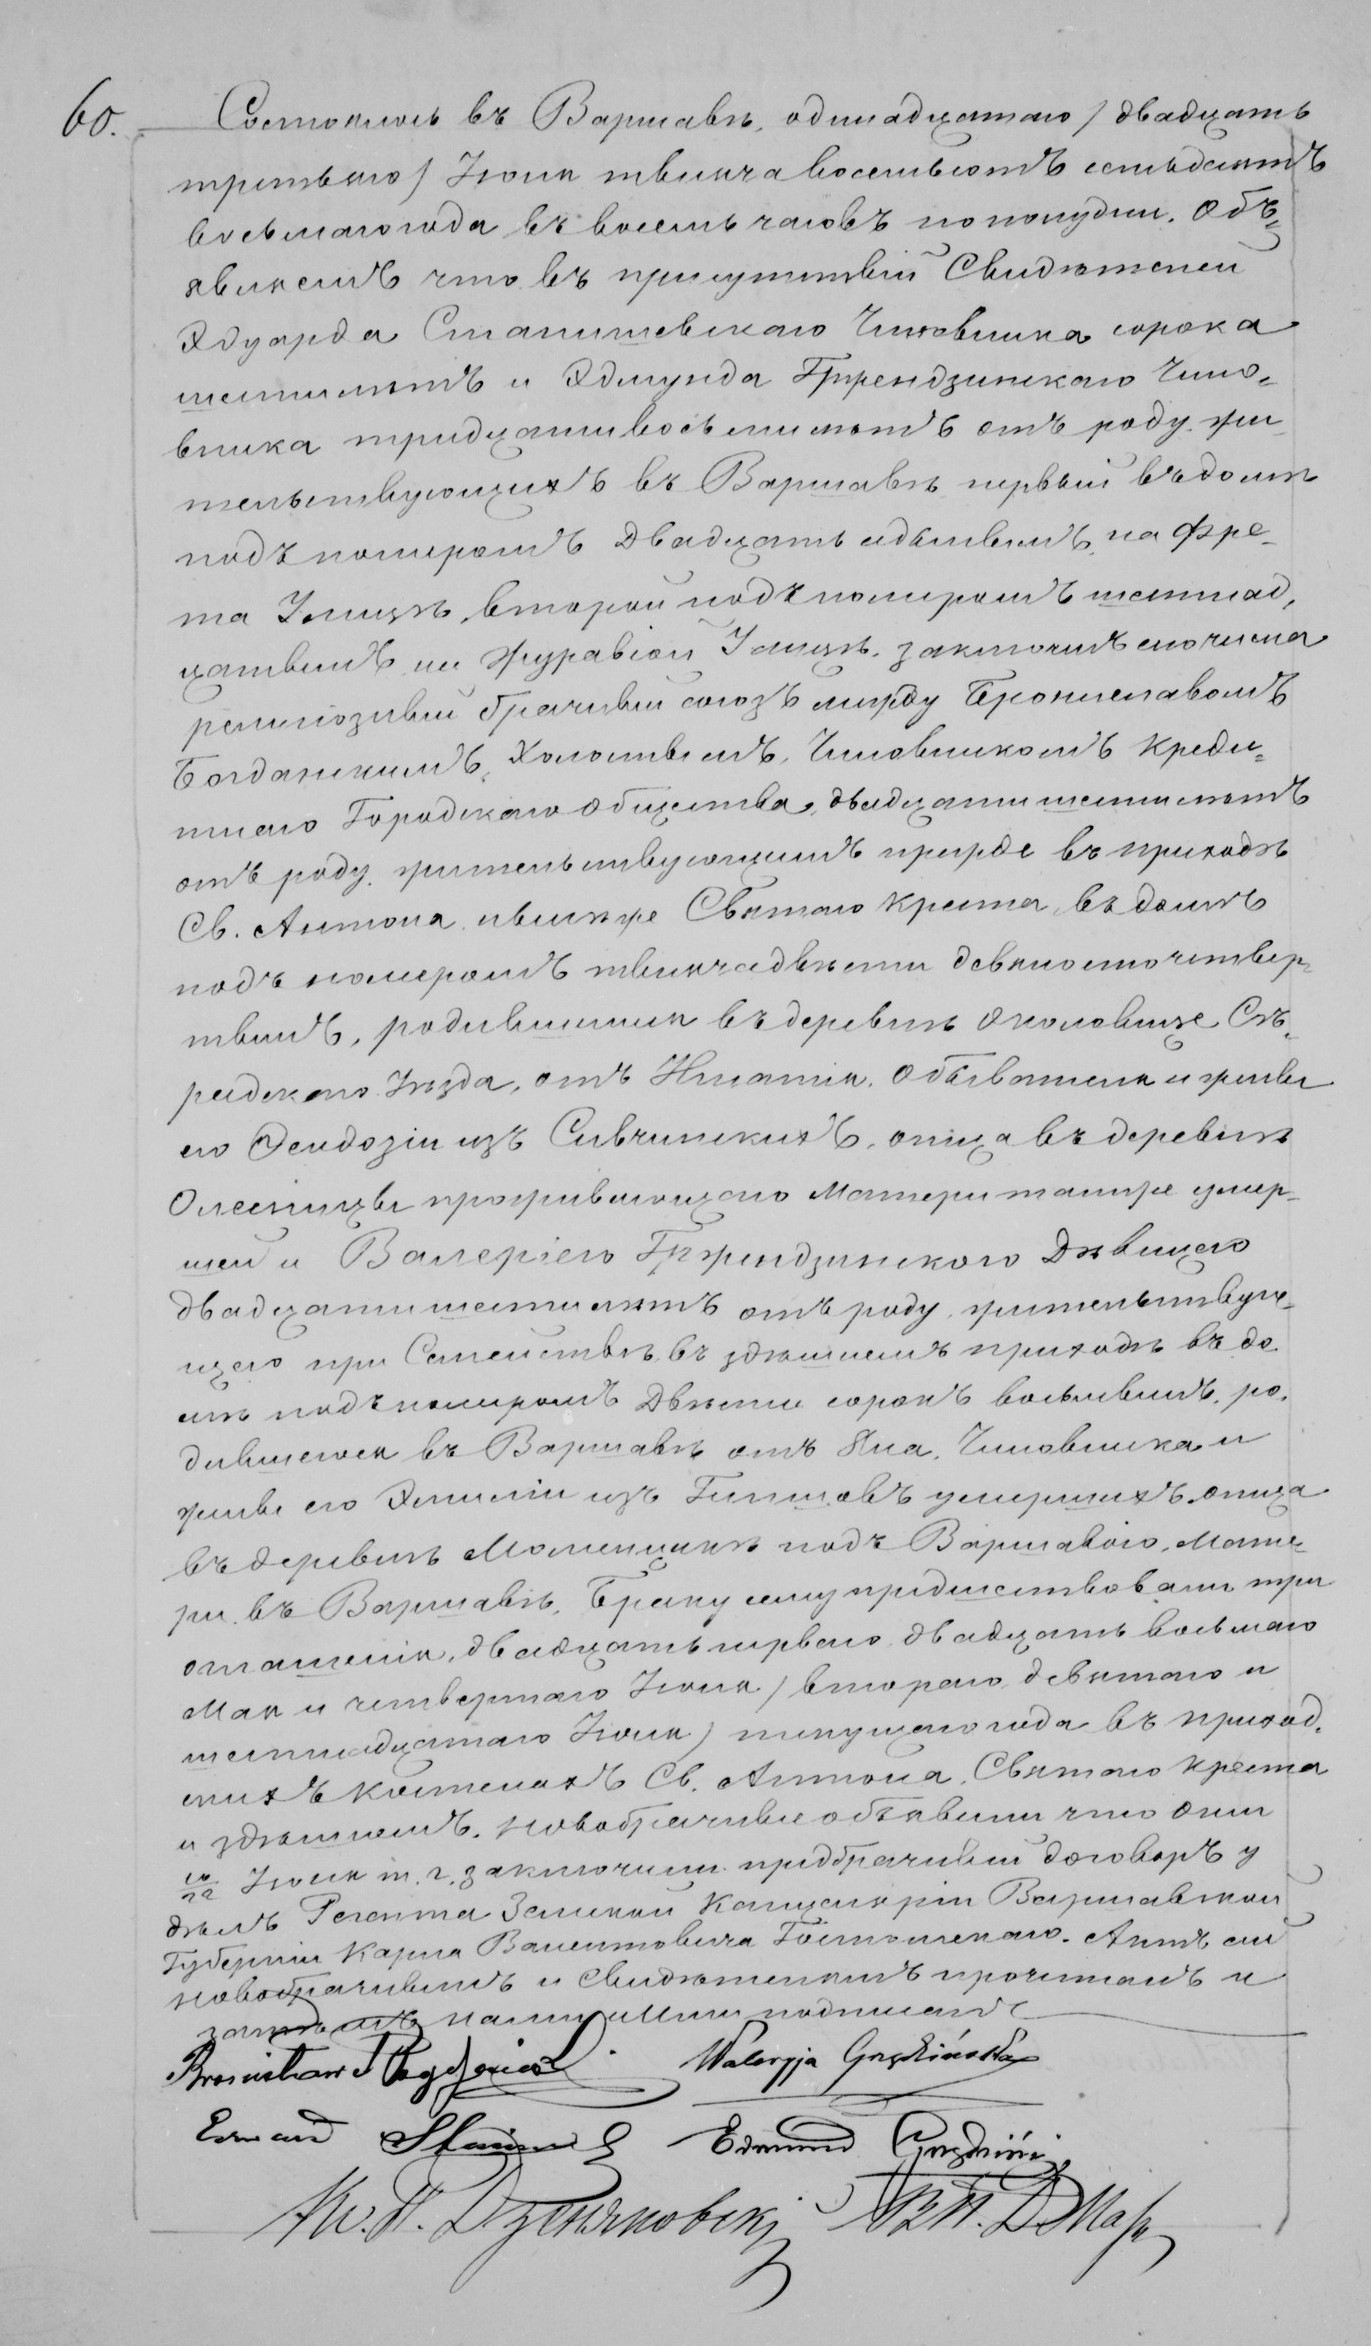 60. Состоялось въ Варшавѣ, одинадцатаго / двадцать
третьяго / Iюня тысяча восемьсотъ семьдесятъ
восьмаго года въ восемь часовъ по полудни. Объ„
являемъ что въ присутствiи Свидѣтелей
Эдуарда Станишевскаго Чиновника сорока
шестилѣтъ и Эдмунда Гржендзинскаго Чино„
вника тридцати восьмилѣтъ отъ роду. жи
тельствующихъ въ Варшавѣ, первый въ домѣ
подъ номеромъ двадцать седьмымъ, на Фре-
та Улицѣ, второй подъ номеромъ шестнад,
цатымъ на Журавiой Улицѣ. заключенъ сего числа
религiозный брачный союзъ между Брониславомъ
Богданскимъ, Холостымъ, Чиновникомъ Креди„
тнаго Городскаго Общества, двадцати шестилѣтъ
отъ роду. жительствующимъ прежде въ приходѣ
Св. Антона, нынѣ же Святаго Креста, въ домѣ
подъ номеромъ тысяча двѣсти девяносто четвер„
тымъ, родившимся въ деревнѣ Околовице Сѣ„
радскаго Уѣзда, отъ Игнатiя. Обывателя и жены
его Феодозiи изъ Сивчинскихъ, отца въ деревнѣ
Олесницы проживающаго Матери тамже умер-
шей и Валерiею Гржендзинскою Дѣвицею
двадцати шестилѣтъ отъ роду. жительствую-
щею при Семействѣ въ здѣшнемъ приходѣ въ до
мѣ подъ номеромъ двѣсти сорокъ восьмымъ. ро.
дившеюся въ Варшавѣ отъ Яна, Чиновника и
жены его Эмилiи изъ умершихъ, отца
въ деревнѣ подъ Варшавою, Мате„
ри въ Варшавѣ. Браку сему предшествовали три
оглашенiя, двадцать перваго, двадцать восьмаго
Мая и четвертаго Iюня / втораго, девятаго и
шестнадцатаго Iюня / текущаго года въ приход,
скихъ костелахъ Св. Антона, Святаго Креста
и здѣшнемъ. Новобрачные объявили что они
10/22 Iюня т. г. заключили предбрачный договоръ у
дѣлъ Регента Земской Канцелярiи Варшавской
Губернiи Карла Валентовича Актъ сей
новобрачнымъ и Свидѣтелямъ прочитанъ и
нами и ими подписанъ
Bronisław Bogdański Walerya Grzędzińska
Edward Edmund Grzędziński
Кс. П. Дзеняковскi